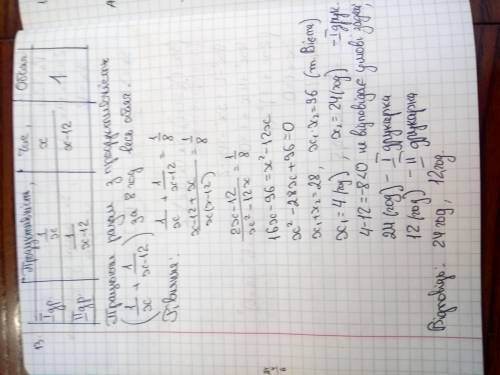 Продуктивність, Час, Обсяг
I др. 1/x x 1
II др. 1/x-12 x-12
Працюють разом з продуктивністю
(1/x + 1/x-12) за 8 год весь обсяг.
Рівняння: 1/x + 1/x-12 = 1/8
x-12+x/x(x-12) = 1/8
2x-12/x²-12x = 1/8
16x-96=x²-12x
x²-28x+96=0
x₁+x₂=28, x₁x₂=96 (т. Вієта)
x₁=4(год), x₂=24(год) - I друк.
4-12=-8<0 не відповідає умові задачі,
24 (год) - I друкарка
12 (год) - II друкарка
Відповідь: 24 год, 12год.